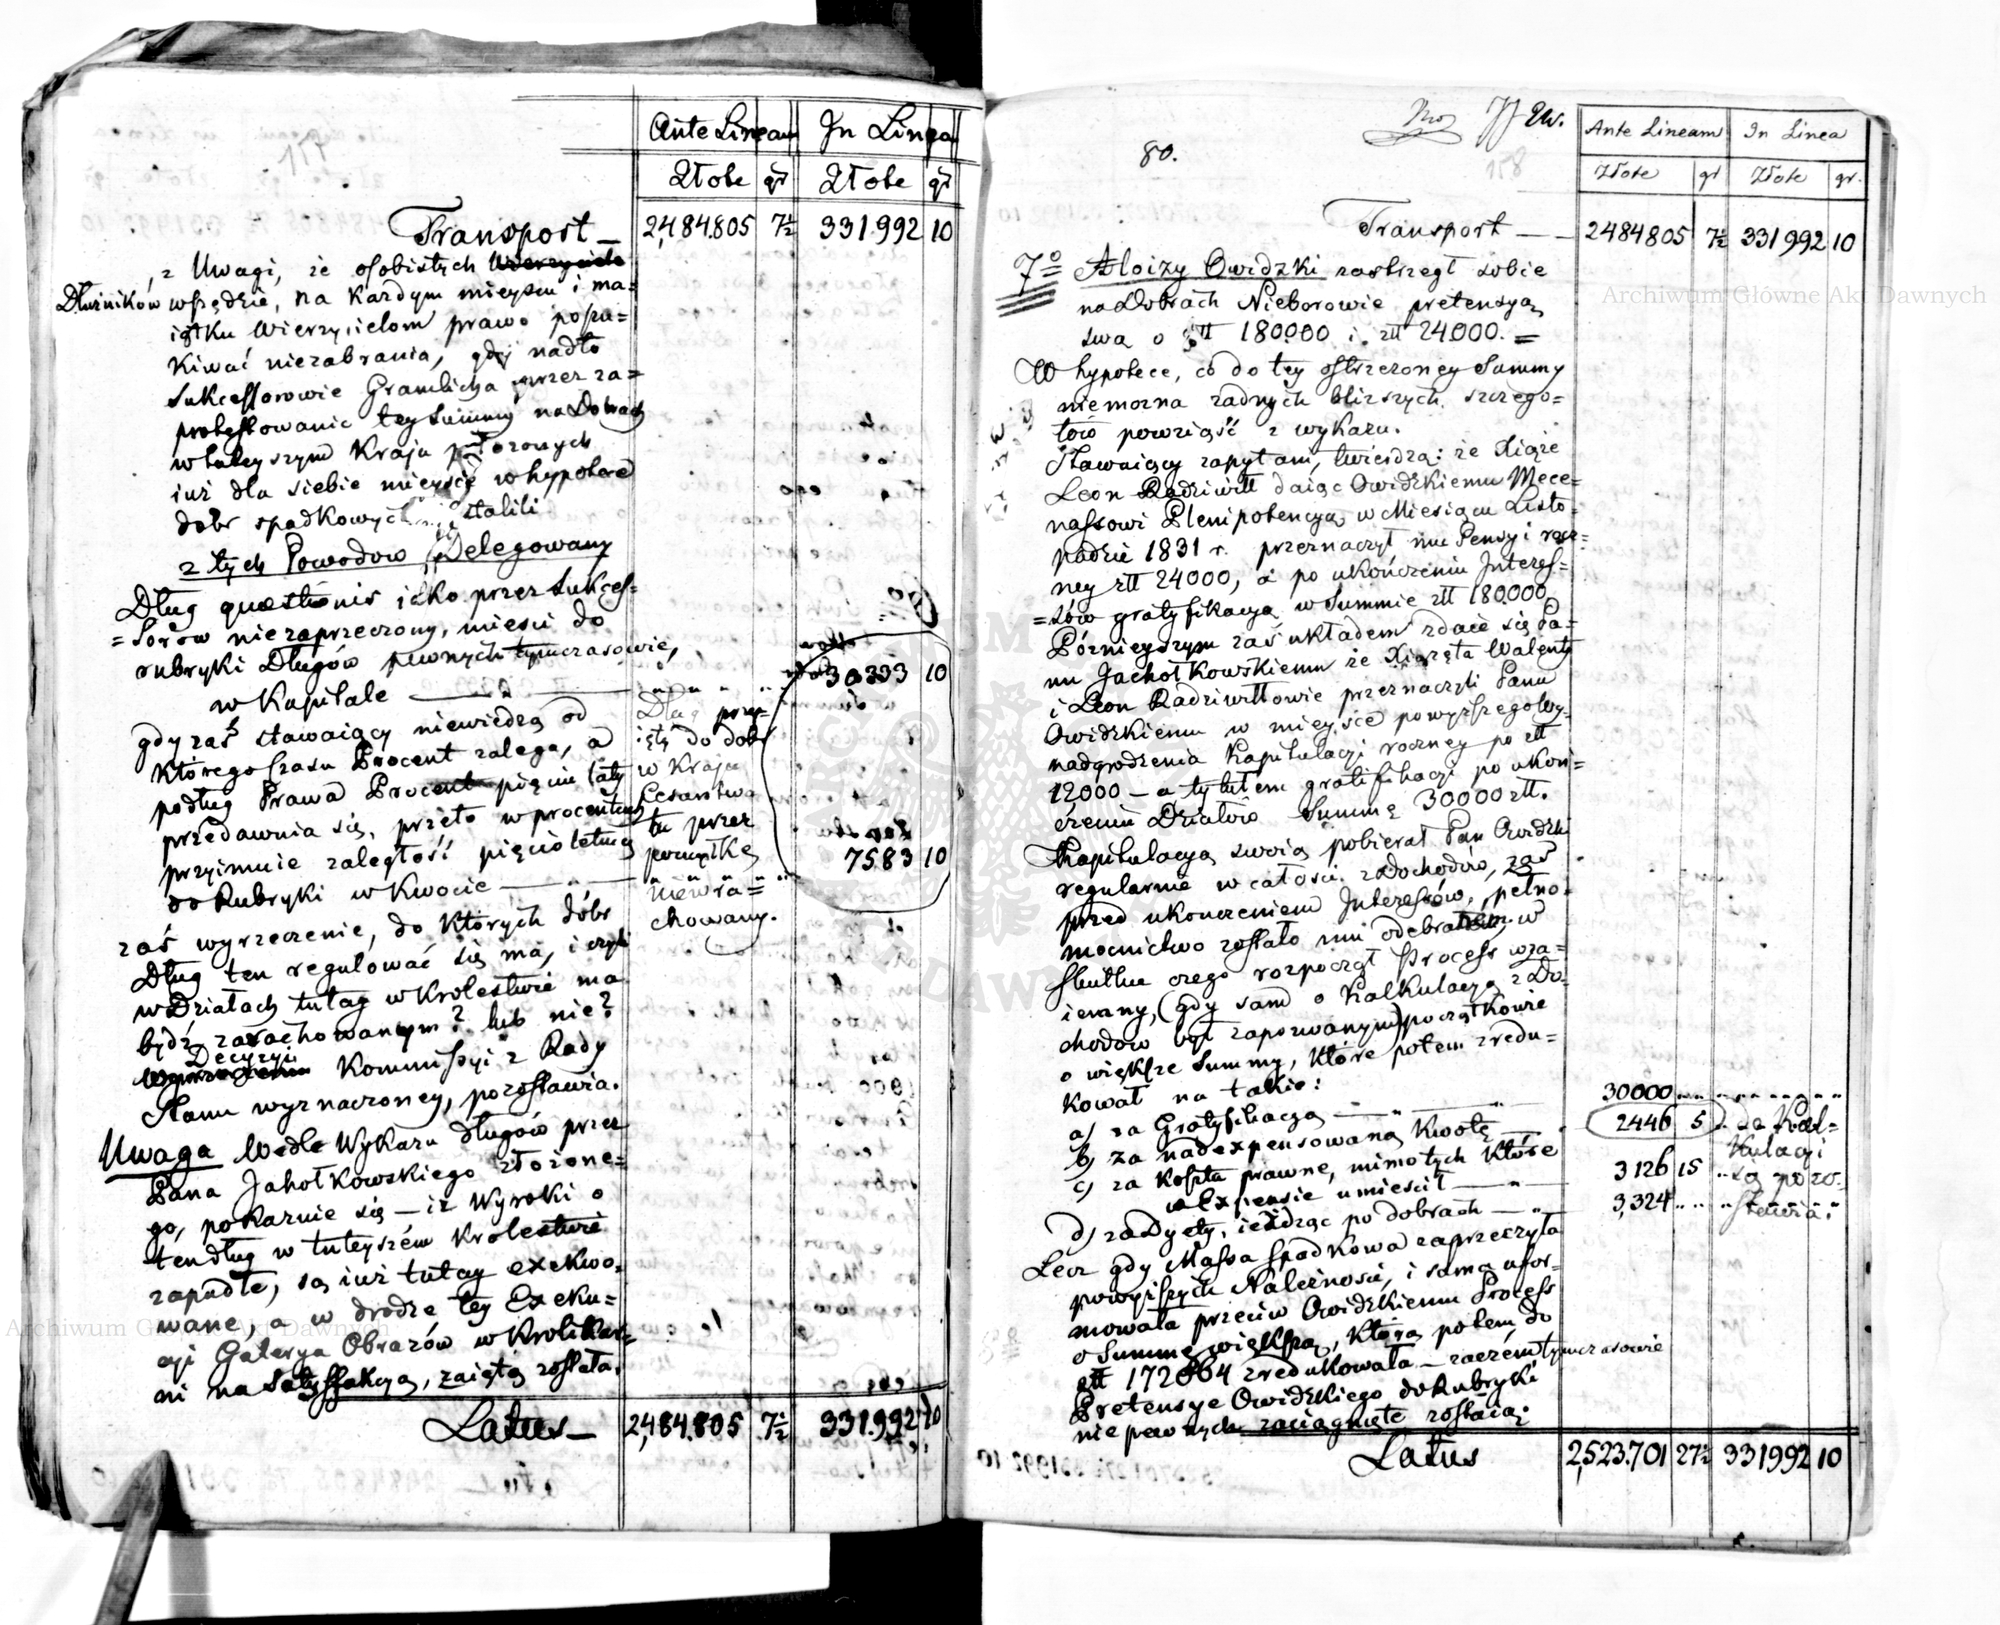 Ante Lineam In Linea
Złote gr Złote gr
Transport — 2,484.805 7½ 331.992 10
z Uwagi, że osobistych
Dłużników wszędzie, na każdym mieyscu i ma=
iątku Wierzycielom prawo poszu=
kiwać niezabrania, gdy nadto
Sukcessorowie Gramlicha przez za=
protestowanie tey Summy na Dobrach
w tuteyszym Kraju położonych
iuż dla siebie mieysce w hypotece
dobr spadkowych ustalili
z tych Powodow Delegowany
Dług quaestionis iako przez Sukces=
=sorów niezaprzeczony, mieści do
rubryki Długów pewnych tymczasowie,
w Kapitale — 30333 10
gdy zaś stawaiący niewiedzą od
którego Czasu Procent zalega, a
podług Prawa Procent pięciu laty
przedawnia się, przeto w procentach
przyimuie zaległość pięcioletnią
do Rubryki w Kwocie — 7583 10
Dług przy=
ięty do dobr
w Kraju
Cesarstwa
tu przez
pomyłkę
niewra=
chowany.
zaś wyrzeczenie, do których dóbr
Dług ten regulować się ma, i czyli
w Działach tutay w Krolestwie ma
bydź zarachowanym? lub nie?
Decyzyi
Kommissyi z Rady
Stanu wyznaczoney, pozostawia.
Uwaga Wedle Wykazu długów przez
Pana Jahołkowskiego złożone=
go, pokazuie się — iż Wyroki o
ten dług w tuteyszém Krolestwie
zapadłe, są iuż tutay exekwo=
wane, a w drodze tey Exeku=
cyi Galerya Obrazów w Krolikar=
ni na Satysfakcyą, zaiętą została.
Latus — 2,484.805 7½ 331.992 10
80.
158
Ante Lineam In Linea
Złote gr Złote gr.
Transport — 2484805 7½ 331992 10
7º Aloizy Owidzki zastrzegł sobie
na Dobrach Nieborowie pretensyą
swą o złł 180000 i złł 24.000. =
W hypotece, co do tey ostrzezoney Summy
niemożna żadnych bliższych szczego=
łów powziąść z wykazu.
Stawaiący zapytani, twierdzą: że Xiąże
Leon Radziwiłł daiąc Owidzkiemu Mece=
nassowi Plenipotencyą w Miesiącu Listo=
padzie 1831 r. przeznaczył mu Pensyi rocz=
ney złł 24000, a po ukończeniu Interes=
=sów gratyfikacyą w Summie złł 180.000
Późnieyszym zaś układem zdaie się Pa=
nu Jachołkowskiemu że Xiążęta Walenty
i Leon Radziwiłłowie przeznaczyli Panu
Owidzkiemu w mieysce powyższego Wy=
nadgrodzenia Kapitulacyi roczney po złł
12000 — a tytułem gratifikacyi po ukoń=
czeniu Działów Summę 30000 złł.
Kapitulacyą swoią pobierał Pan Owidzki
regularnie w całości z dochodów, zaś
przed ukończeniem Interessów, pełno=
mocnictwo zostało mu odebraném w
skutku czego rozpoczął Process wza=
iemny, (gdy sam o Kalkulacyą z Do=
chodow był zapozwanym) początkowie
o większe Summy, które potem zredu=
kował na takie:
a) za Gratyfikacyą — 30000
b) za nadexpensowaną Kwotę — 2446 5
c) za koszta prawne, mimo tych które
w Expensie umieścił — 3126 15
d) za Dyety, ieżdząc po dobrach — 3,324
do Kal=
kulacyi
się pozo=
stawia.
Lecz gdy Massa spadkowa zaprzeczyła
powyższych Należności, i sama ufor=
mowała przeciw Owidzkiemu Process
o Summę większą, którą potem do
złł 172064 zredukowała — zaczém tymczasowie
Pretensye Owidzkiego do Rubryki
niepewnych zaciągnięte zostaią.
Latus 2,523.701 27½ 331992 10
Archiwum Główne Akt Dawnych
Archiwum Główne Akt Dawnych